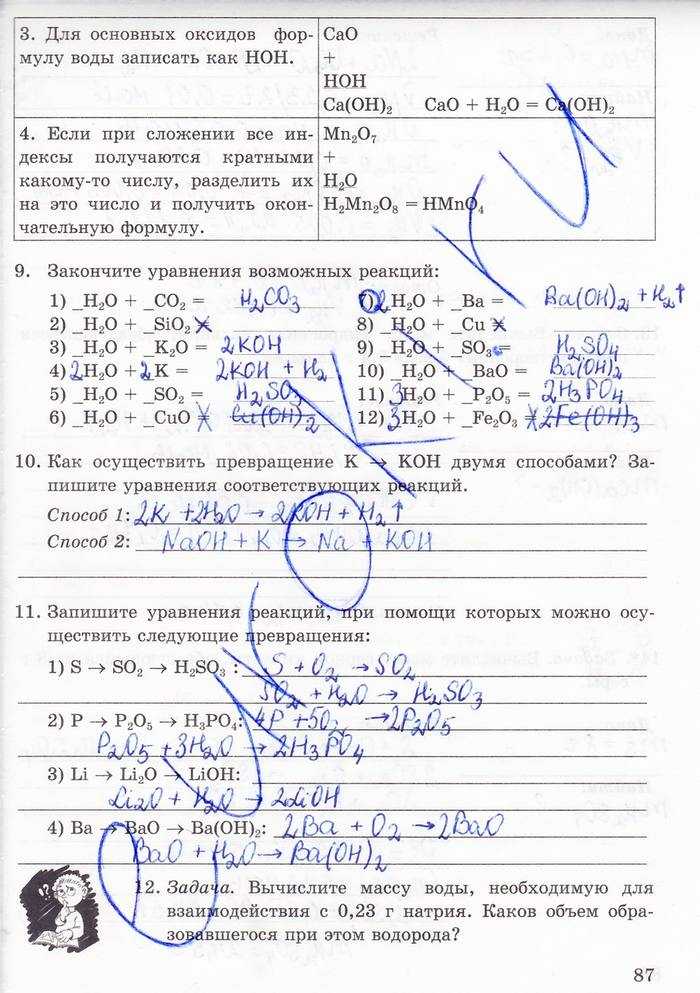 3. Для основных оксидов фор-
мулу воды записать как HOH.
CaO
+
HOH
Ca(OH)₂ CaO + H₂O = Ca(OH)₂
4. Если при сложении все ин-
дексы получаются кратными
какому-то числу, разделить их
на это число и получить окон-
чательную формулу.
Mn₂O₇
+
H₂O
H₂Mn₂O₈ = HMnO₄
9. Закончите уравнения возможных реакций:
1) _H₂O + _CO₂ = H₂CO₃
2) _H₂O + _SiO₂
3) _H₂O + _K₂O = 2KOH
4) 2H₂O + 2K = 2KOH + H₂
5) _H₂O + _SO₂ = H₂SO₃
6) _H₂O + _CuO Cu(OH)₂
7) 2H₂O + _Ba = Ba(OH)₂ + H₂↑
8) _H₂O + _Cu
9) _H₂O + _SO₃ = H₂SO₄
10) _H₂O + _BaO = Ba(OH)₂
11) 3H₂O + _P₂O₅ = 2H₃PO₄
12) 3H₂O + _Fe₂O₃ 2Fe(OH)₃
10. Как осуществить превращение K → KOH двумя способами? За-
пишите уравнения соответствующих реакций.
Способ 1: 2K + 2H₂O → 2KOH + H₂↑
Способ 2: NaOH + K → Na + KOH
11. Запишите уравнения реакций, при помощи которых можно осу-
ществить следующие превращения:
1) S → SO₂ → H₂SO₃: S + O₂ → SO₂
SO₂ + H₂O → H₂SO₃
2) P → P₂O₅ → H₃PO₄: 4P + 5O₂ → 2P₂O₅
P₂O₅ + 3H₂O → 2H₃PO₄
3) Li → Li₂O → LiOH:
Li₂O + H₂O → 2LiOH
4) Ba → BaO → Ba(OH)₂: 2Ba + O₂ → 2BaO
BaO + H₂O → Ba(OH)₂
12. Задача. Вычислите массу воды, необходимую для
взаимодействия с 0,23 г натрия. Каков объем обра-
зовавшегося при этом водорода?
87